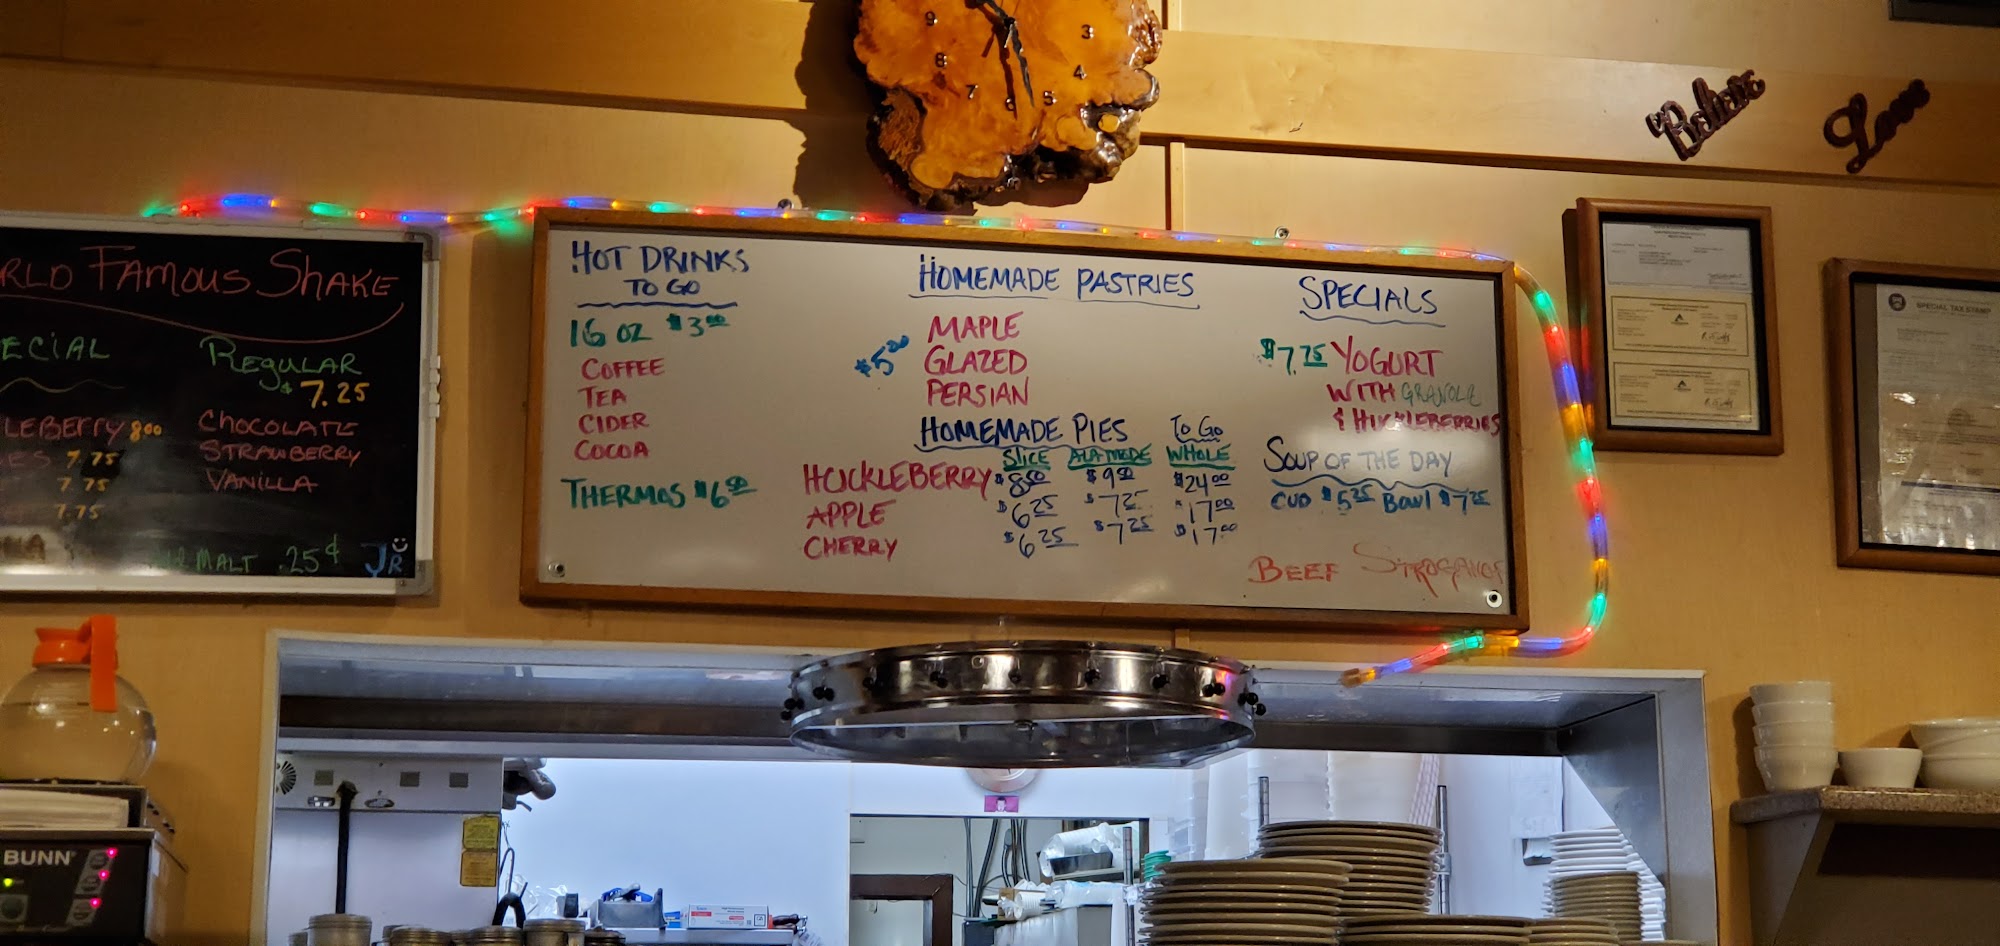 9
8
7
6
5
4
3
Believe
Love
RLD FAMOUS SHAKE
ECIAL
REGULAR
$7.25
LEBERRY 8.00
CHOCOLATE
ES 7.75
STRAWBERRY
7.75
VANILLA
7.75
MALT .25¢ JR
HOT DRINKS
TO GO
16 OZ $3.00
COFFEE
TEA
CIDER
COCOA
THERMOS $6.50
HOMEMADE PASTRIES
MAPLE
$5.00 GLAZED
PERSIAN
HOMEMADE PIES TO GO
SLICE ALA MODE WHOLE
HUCKLEBERRY $8.50 $9.50 $24.00
APPLE $6.25 $7.25 $17.00
CHERRY $6.25 $7.25 $17.00
SPECIALS
$7.75 YOGURT
WITH GRANOLA
& HUCKLEBERRIES
SOUP OF THE DAY
CUP $5.25 BOWL $7.25
BEEF STROGANOF
SPECIAL TAX STAMP
BUNN